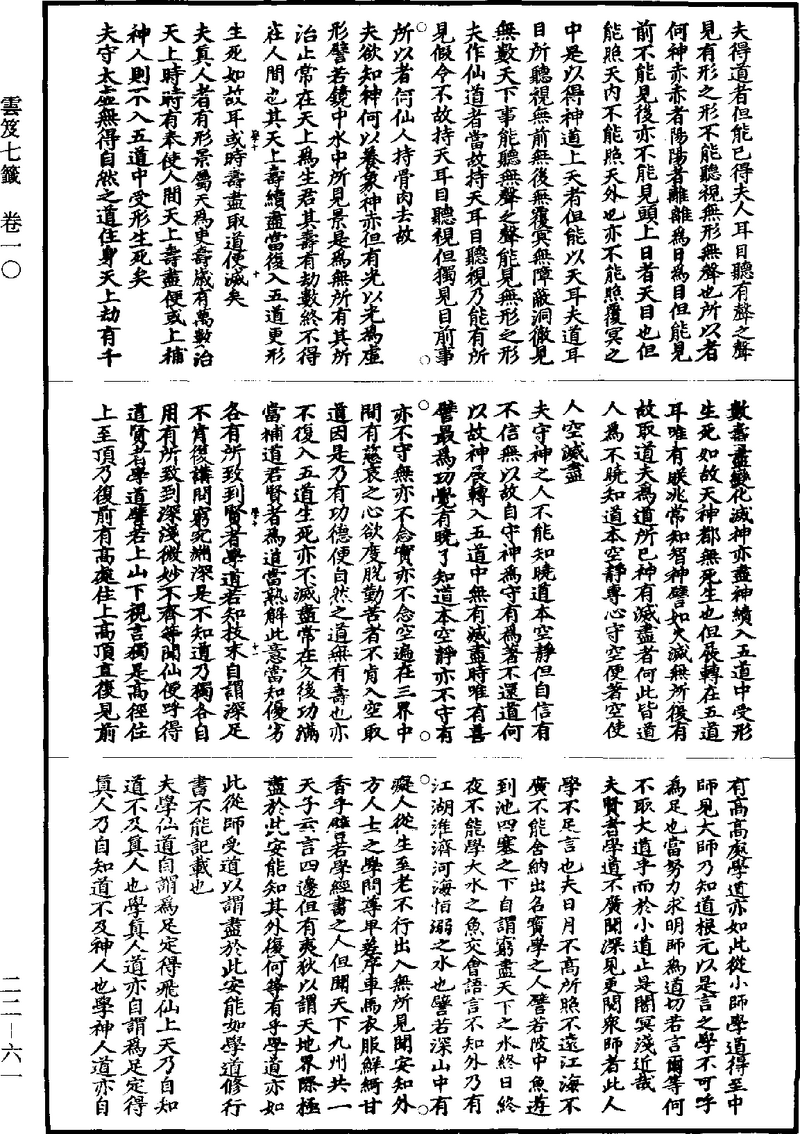 夫得道者但能已得夫人耳目聽有聲之聲
見有形之形不能聽視無形無聲也所以者
何神赤赤者陽陽者離離為日為目但能見
前不能見後亦不能見頭上日者天目也但
能照天內不能照天外也亦不能照覆冥之
中是以得神道上天者但能以天耳夫道耳
目所聽視無前無後無覆冥無障蔽洞徹見
無數天下事能聽無聲之聲能見無形之形
夫作仙道者當故持天耳目聽視乃能有所
見假令不故持天耳目聽視但獨見目前事
所以者何仙人持骨肉去故
夫欲知神何以養象神亦但有光以光為虛
形譬若鏡中水中所見景是為無所有其所
治止常在天上為生君其壽有劫數終不得
在人間也其天上壽續盡當復入五道更形
生死如故耳或時壽盡取道便滅矣
夫真人者有形景屬天為吏壽歲有萬數治
天上時時有奉使人間天上壽盡便或上補
神人則不入五道中受形生死矣
夫守太虛無得自然之道住身天上劫有千
數壽盡變化滅神亦盡神續入五道中受形
生死如故天神都無死生也但展轉在五道
耳唯有朕兆常知智神譬如火滅無所復有
故取道夫為道所已神有滅盡者何此皆道
人為不曉知道本空靜專心守空便著空使
人空滅盡
夫守神之人不能知曉道本空靜但自信有
不信無以故自守神為守有為著不還道何
以故神展轉入五道中無有滅盡時唯有善
譬最為功覺有曉了知道本空靜亦不守有
亦不守無亦不念實亦不念空遍在三界中
間有慈哀之心欲度脫勤苦者不肯入空取
道因是乃有功德便自然之道無有壽也亦
不復入五道生死亦不滅盡常在久後功滿
當補道君賢者為道當熟解此意當知優劣
各有所致到賢者學道若知技末自謂深足
不肯復講問窮究淵深是不知道乃獨各自
用有所致到深淺微妙不齊等聞仙便呼得
道賢者學道譬若上山下視言獨是高徑住
上至頂乃復前有高處住上高頂直復見前
有高高處學道亦如此從小師學道得至中
師見大師乃知道根元以是言之學不可呼
為足也當努力求明師為道切若言爾等何
不取大道乎而於小道止是闇冥淺近哉
夫賢者學道不廣聞深見更閱衆師者此人
學不足言也夫日月不高所照不遠江海不
廣不能舍納出名寶學之人譬若陂中魚遊
到池四塞之下自謂窮盡天下之水終日終
夜不能學大水之魚交會語言不知外乃有
江湖淮濟河海怕溺之水也譬若深山中有
癡人從生至老不行出入無所見聞安知外
方人士之學問尊卑差序車馬衣服鮮綺甘
香乎譬若學經書之人但聞天下九州共一
天子云言四邊但有夷狄以謂天地界際極
盡於此安能知其外復何等有乎學道亦如
此從師受道以謂盡於此安能如學道修行
書不能記載也
夫學仙道自謂為足定得飛仙上天乃自知
道不及真人也學真人道亦自謂為足定得
真人乃自知道不及神人也學神人道亦自
雲笈七籤 卷一〇
二二—六一